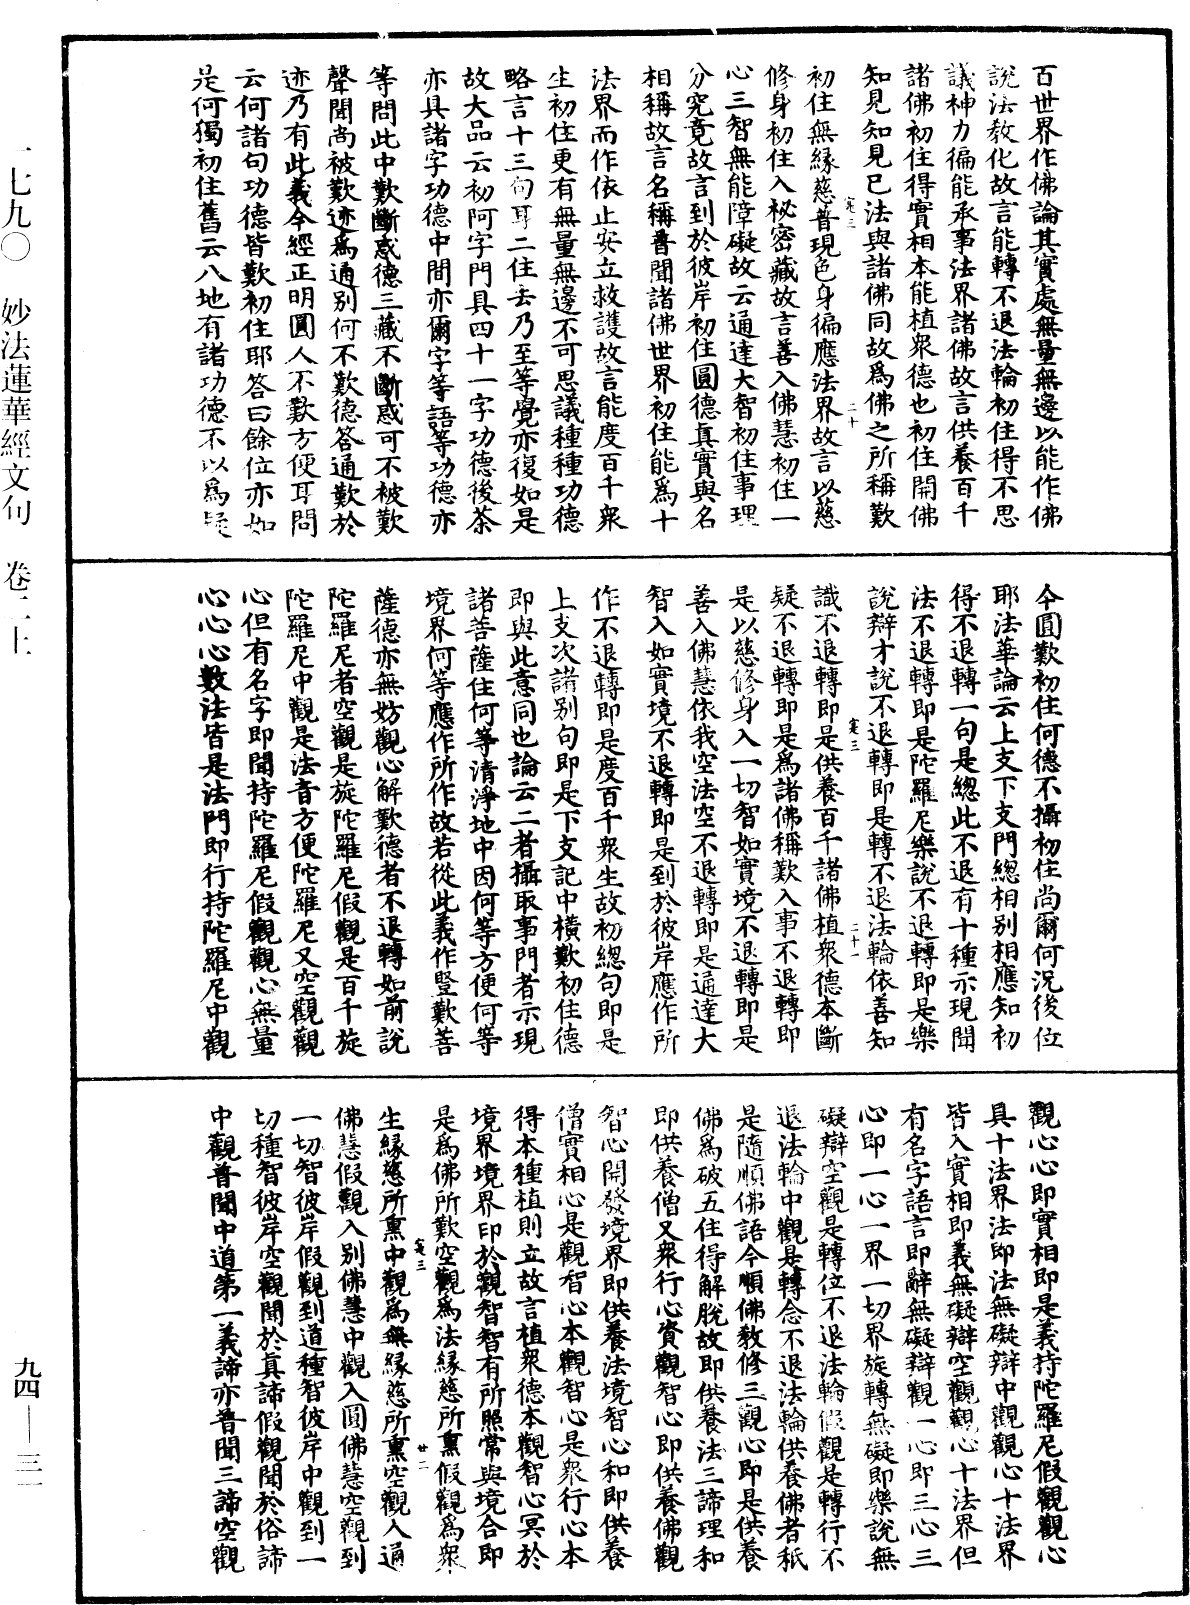 百世界作佛論其實處無量無邊以能作佛
說法教化故言能轉不退法輪初住得不思
議神力徧能承事法界諸佛故言供養百千
諸佛初住得實相本能植衆德也初住開佛
知見知見已法與諸佛同故爲佛之所稱歎
初住無緣慈普現色身徧應法界故言以慈
修身初住入祕密藏故言善入佛慧初住一
心三智無能障礙故云通達大智初住事理
分究竟故言到於彼岸初住圓德真實與名
相稱故言名稱普聞諸佛世界初住能爲十
法界而作依止安立救護故言能度百千衆
生初住更有無量無邊不可思議種種功德
略言十三句耳二住去乃至等覺亦復如是
故大品云初阿字門具四十一字功德後茶
亦具諸字功德中間亦爾字等語等功德亦
等問此中歎斷惑德三藏不斷惑可不被歎
聲聞尚被歎迹爲通別何不歎德答通歎於
迹乃有此義今經正明圓人不歎方便耳問
云何諸句功德皆歎初住耶答曰餘位亦如
是何獨初住舊云八地有諸功德不以爲疑
今圓歎初住何德不攝初住尚爾何況後位
耶法華論云上支下支門總相別相應知初
得不退轉一句是總此不退有十種示現聞
法不退轉即是陀羅尼樂說不退轉即是樂
說辯才說不退轉即是轉不退法輪依善知
識不退轉即是供養百千諸佛植衆德本斷
疑不退轉即是爲諸佛稱歎入事不退轉即
是以慈修身入一切智如實境不退轉即是
善入佛慧依我空法空不退轉即是通達大
智入如實境不退轉即是到於彼岸應作所
作不退轉即是度百千衆生故初總句即是
上支次諸別句即是下支記中橫歎初住德
即與此意同也論云二者攝取事門者示現
諸菩薩住何等清淨地中因何等方便何等
境界何等應作所作故若從此義作豎歎菩
薩德亦無妨觀心解歎德者不退轉如前說
陀羅尼者空觀是旋陀羅尼假觀是百千旋
陀羅尼中觀是法音方便陀羅尼又空觀觀
心但有名字即聞持陀羅尼假觀觀心無量
心心心數法皆是法門即行持陀羅尼中觀
觀心心即實相即是義持陀羅尼假觀觀心
具十法界法即法無礙辯中觀觀心十法界
皆入實相即義無礙辯空觀觀心十法界但
有名字語言即辭無礙辯觀一心即三心三
心即一心一界一切界旋轉無礙即樂說無
礙辯空觀是轉位不退法輪假觀是轉行不
退法輪中觀是轉念不退法輪供養佛者秖
是隨順佛語今順佛教修三觀心即是供養
佛爲破五住得解脫故即供養法三諦理和
即供養僧又衆行心資觀智心即供養佛觀
智心開發境界即供養法境智心和即供養
僧實相心是觀智心本觀智心是衆行心本
得本種植則立故言植衆德本觀智心冥於
境界境界印於觀智智有所照常與境合即
是爲佛所歎空觀爲法緣慈所熏假觀爲衆
生緣慈所熏中觀爲無緣慈所熏空觀入通
佛慧假觀入別佛慧中觀入圓佛慧空觀到
一切智彼岸假觀到道種智彼岸中觀到一
切種智彼岸空觀聞於真諦假觀聞於俗諦
中觀普聞中道第一義諦亦普聞三諦空觀
寔三
二十
寔三
二十一
寔三
廿二
一七九〇 妙法蓮華經文句 卷二十
九四—三一